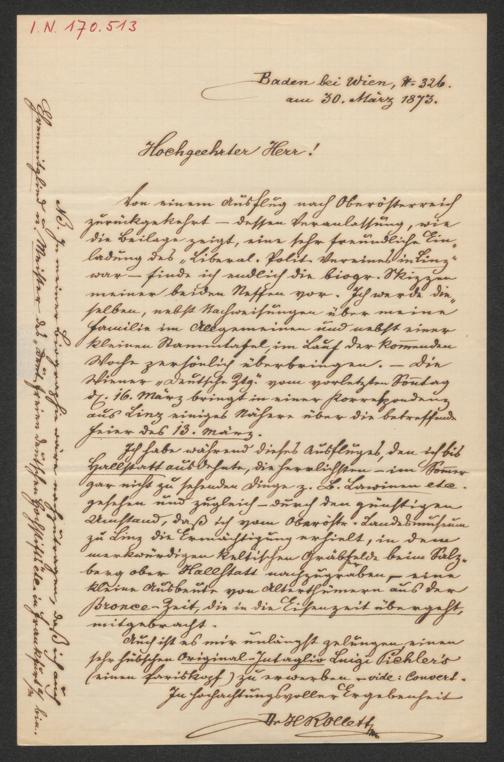 I. N. 170.513
Baden bei Wien, N= 326.
am 30. März 1873.
Hochgeehrter Herr!
Von einem Ausflug nach Oberösterreich
zurückgekehrt — dessen Veranlassung, wie
die Beilage zeigt, eine sehr freundliche Ein-
ladung des „Liberal. Polit. Vereines in Linz"
war — finde ich endlich die biogr. Skizzen
meiner beiden Neffen vor. Ich werde die-
selben, nebst Nachweisungen über meine
Familie im Allgemeinen und nebst einer
kleinen Stammtafel, im Lauf der kommenden
Woche persönlich überbringen. — Die
Wiener „Deutsche Ztg" vom vorletzten Sonntag
d. i. 16. März bringt in einer Korrespondenz
aus Linz einiges Nähere über die betreffende
Feier des 13. März.
Ich habe während dieses Ausfluges, den ich bis
Hallstatt ausdehnte, die herrlichsten — im Sommer
gar nicht zu sehenden Dinge z. B. Lawinen etc.
gesehen und zugleich — durch den günstigen
Umstand, daß ich vom Oberöstr. Landesmuseum
zu Linz die Ermächtigung erhielt, in dem
merkwürdigen keltischen Gräbfelde beim Salz-
berg ober Hallstatt nachzugraben, — eine
kleine Ausbeute von Alterthümern aus der
Bronce-Zeit, die in die Eisenzeit übergeht,
mitgebracht.
Auch ist es mir unlängst gelungen, einen
sehr hübschen Original-Intaglio Luigi Pichler's
(einen Pariskopf) zu erwerben — vide: Convert.
In hochachtungsvoller Ergebenheit
Dr H Rollett
NB. In meiner Biographie wäre nachzutragen, daß ich auch
Ehrenmitglied u. Meister des freien deutschen Hochstiftes etc. in Frankfurt a/M bin.